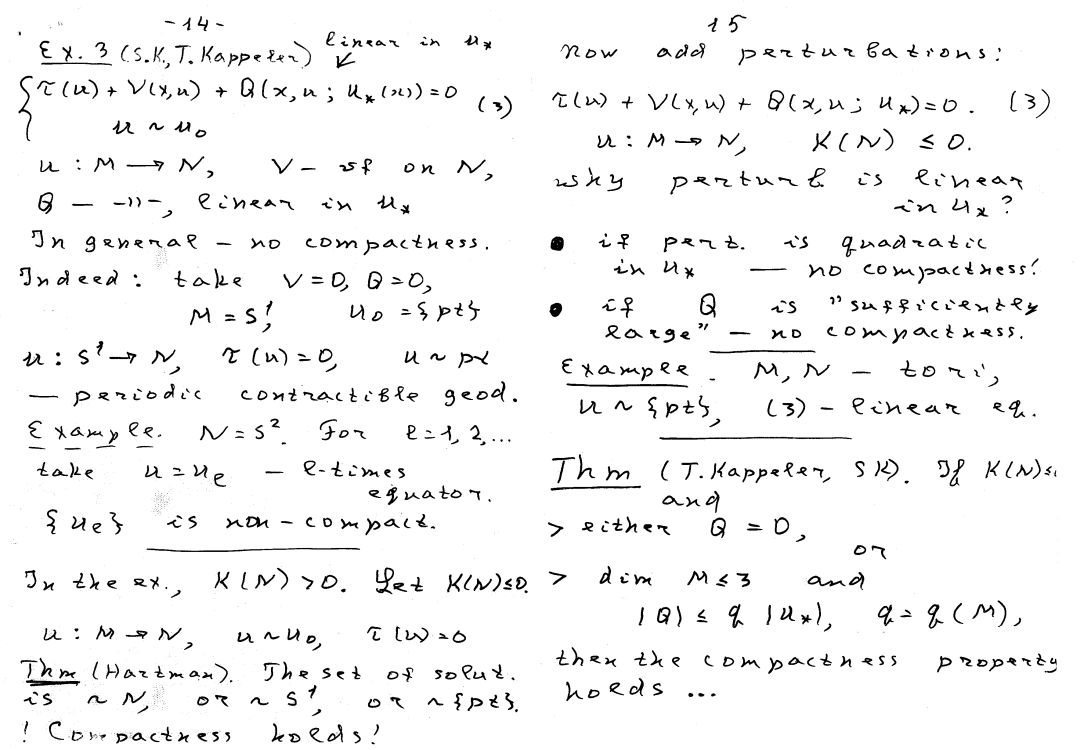 -14-
Ex. 3 (S.K., T. Kappeler) linear in u_*
τ(u) + V(x,u) + Q(x,u; u_*(x)) = 0 (3)
u ~ u_0
u : M → N, V – vf on N,
Q – –))–, linear in u_*
In general – no compactness.
Indeed: take V = 0, Q = 0,
M = S¹, u_0 = {pt}
u : S¹ → N, τ(u) = 0, u ~ pt
— periodic contractible geod.
Example. N = S². For l = 1, 2, ...
take u = u_l – l-times
equator.
{u_l} is non-compact.
In the ex., K(N) > 0. Let K(N) ≤ 0.
u : M → N, u ~ u_0, τ(u) = 0
Thm (Hartman). The set of solut.
is ~ N, or ~ S¹, or ~ {pt}.
! Compactness holds!
15
now add perturbations:
τ(u) + V(x,u) + Q(x,u; u_*) = 0. (3)
u : M → N, K(N) ≤ 0.
why perturb. is linear
in u_*?
● if pert. is quadratic
in u_* — no compactness!
● if Q is "sufficiently
large" – no compactness.
Example. M, N – tori,
u ~ {pt}, (3) – linear eq.
Thm (T. Kappeler, SK). If K(N) ≤
and
> either Q = 0,
or
> dim M ≤ 3 and
|Q| ≤ q |u_*|, q = q(M),
then the compactness property
holds ...